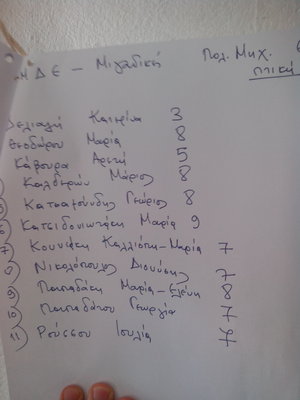 ΜΔΕ - Μιγαδική Πολ. Μηχ.
πτική
Δελιαλή Κατερίνα 3
Θεοδώρου Μαρία 8
Κάβουρα Αρετή 5
Καλδερών Μάριος 8
5 Κατσαμούνδης Γεώργιος 8
6 Κατσιδονιωτάκη Μαρία 9
7) Κουνάκη Καλλιόπη-Μαρία 7
8) Νικολόπουλος Διονύσης 7
9) Παπαδάκη Μαρία-Ελένη 8
10) Παπαδάτου Γεωργία 7
11) Ρούσσου Ιουλία 7